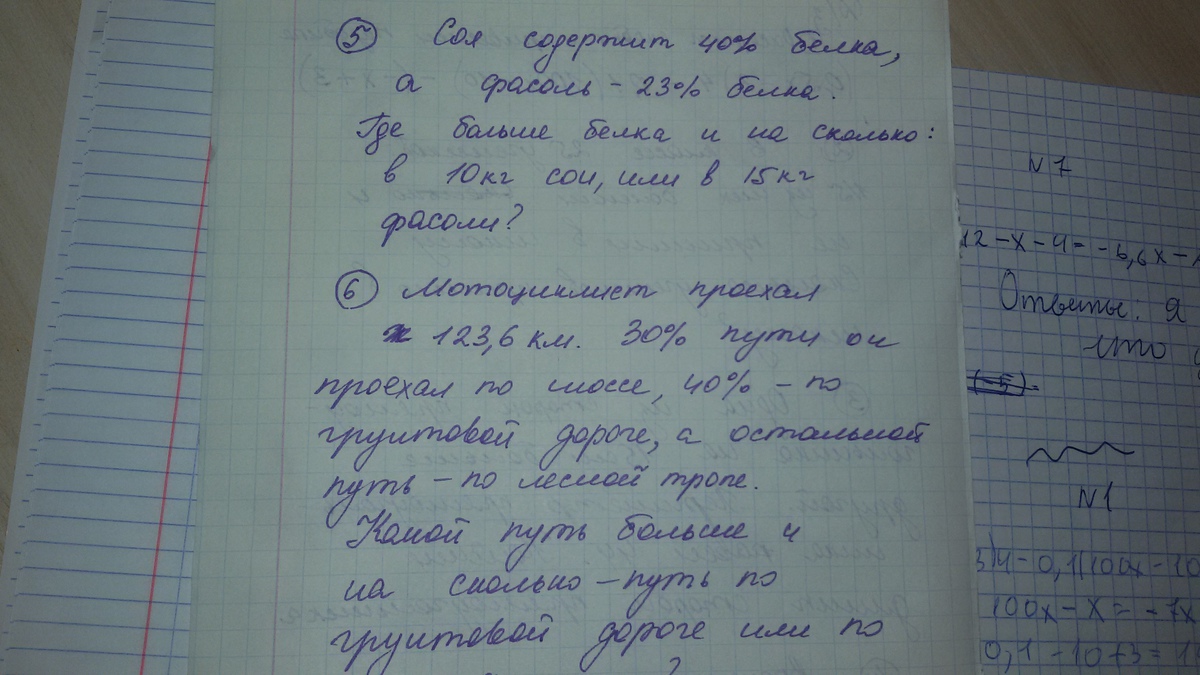 ⑤ Соя содержит 40% белка,
а фасоль - 23% белка.
Где больше белка и на сколько:
в 10 кг сои, или в 15 кг
фасоли?
⑥ Мотоциклист проехал
123,6 км. 30% пути он
проехал по шоссе, 40% - по
грунтовой дороге, а остальной
путь - по лесной тропе.
Какой путь больше и
на сколько - путь по
грунтовой дороге или по
N7
12-x-4=-6,6x-
Ответы: Я
что
(-5)=
N1
3)4-0,1(100x-10
100x-x=-7x
0,1-10+3=1